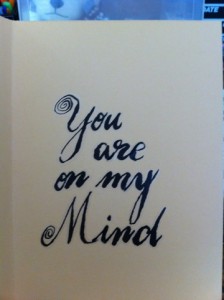 You
are
on my
Mind